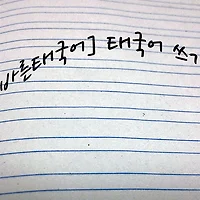 바른태국어] 태국어